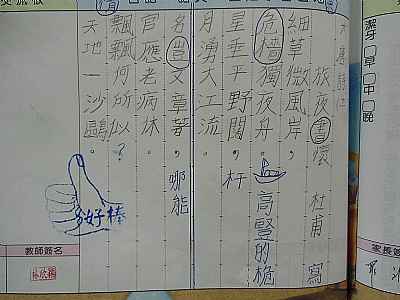 潔牙 □早 □中 □晚
旅夜書懷 杜甫 寫
細草微風岸，
危檣獨夜舟。 高豎的桅
星垂平野闊， 杆
月湧大江流。
名豈文章著， 哪能
官應老病休。
飄飄何所似？
天地一沙鷗。
好棒
教師簽名
家長簽